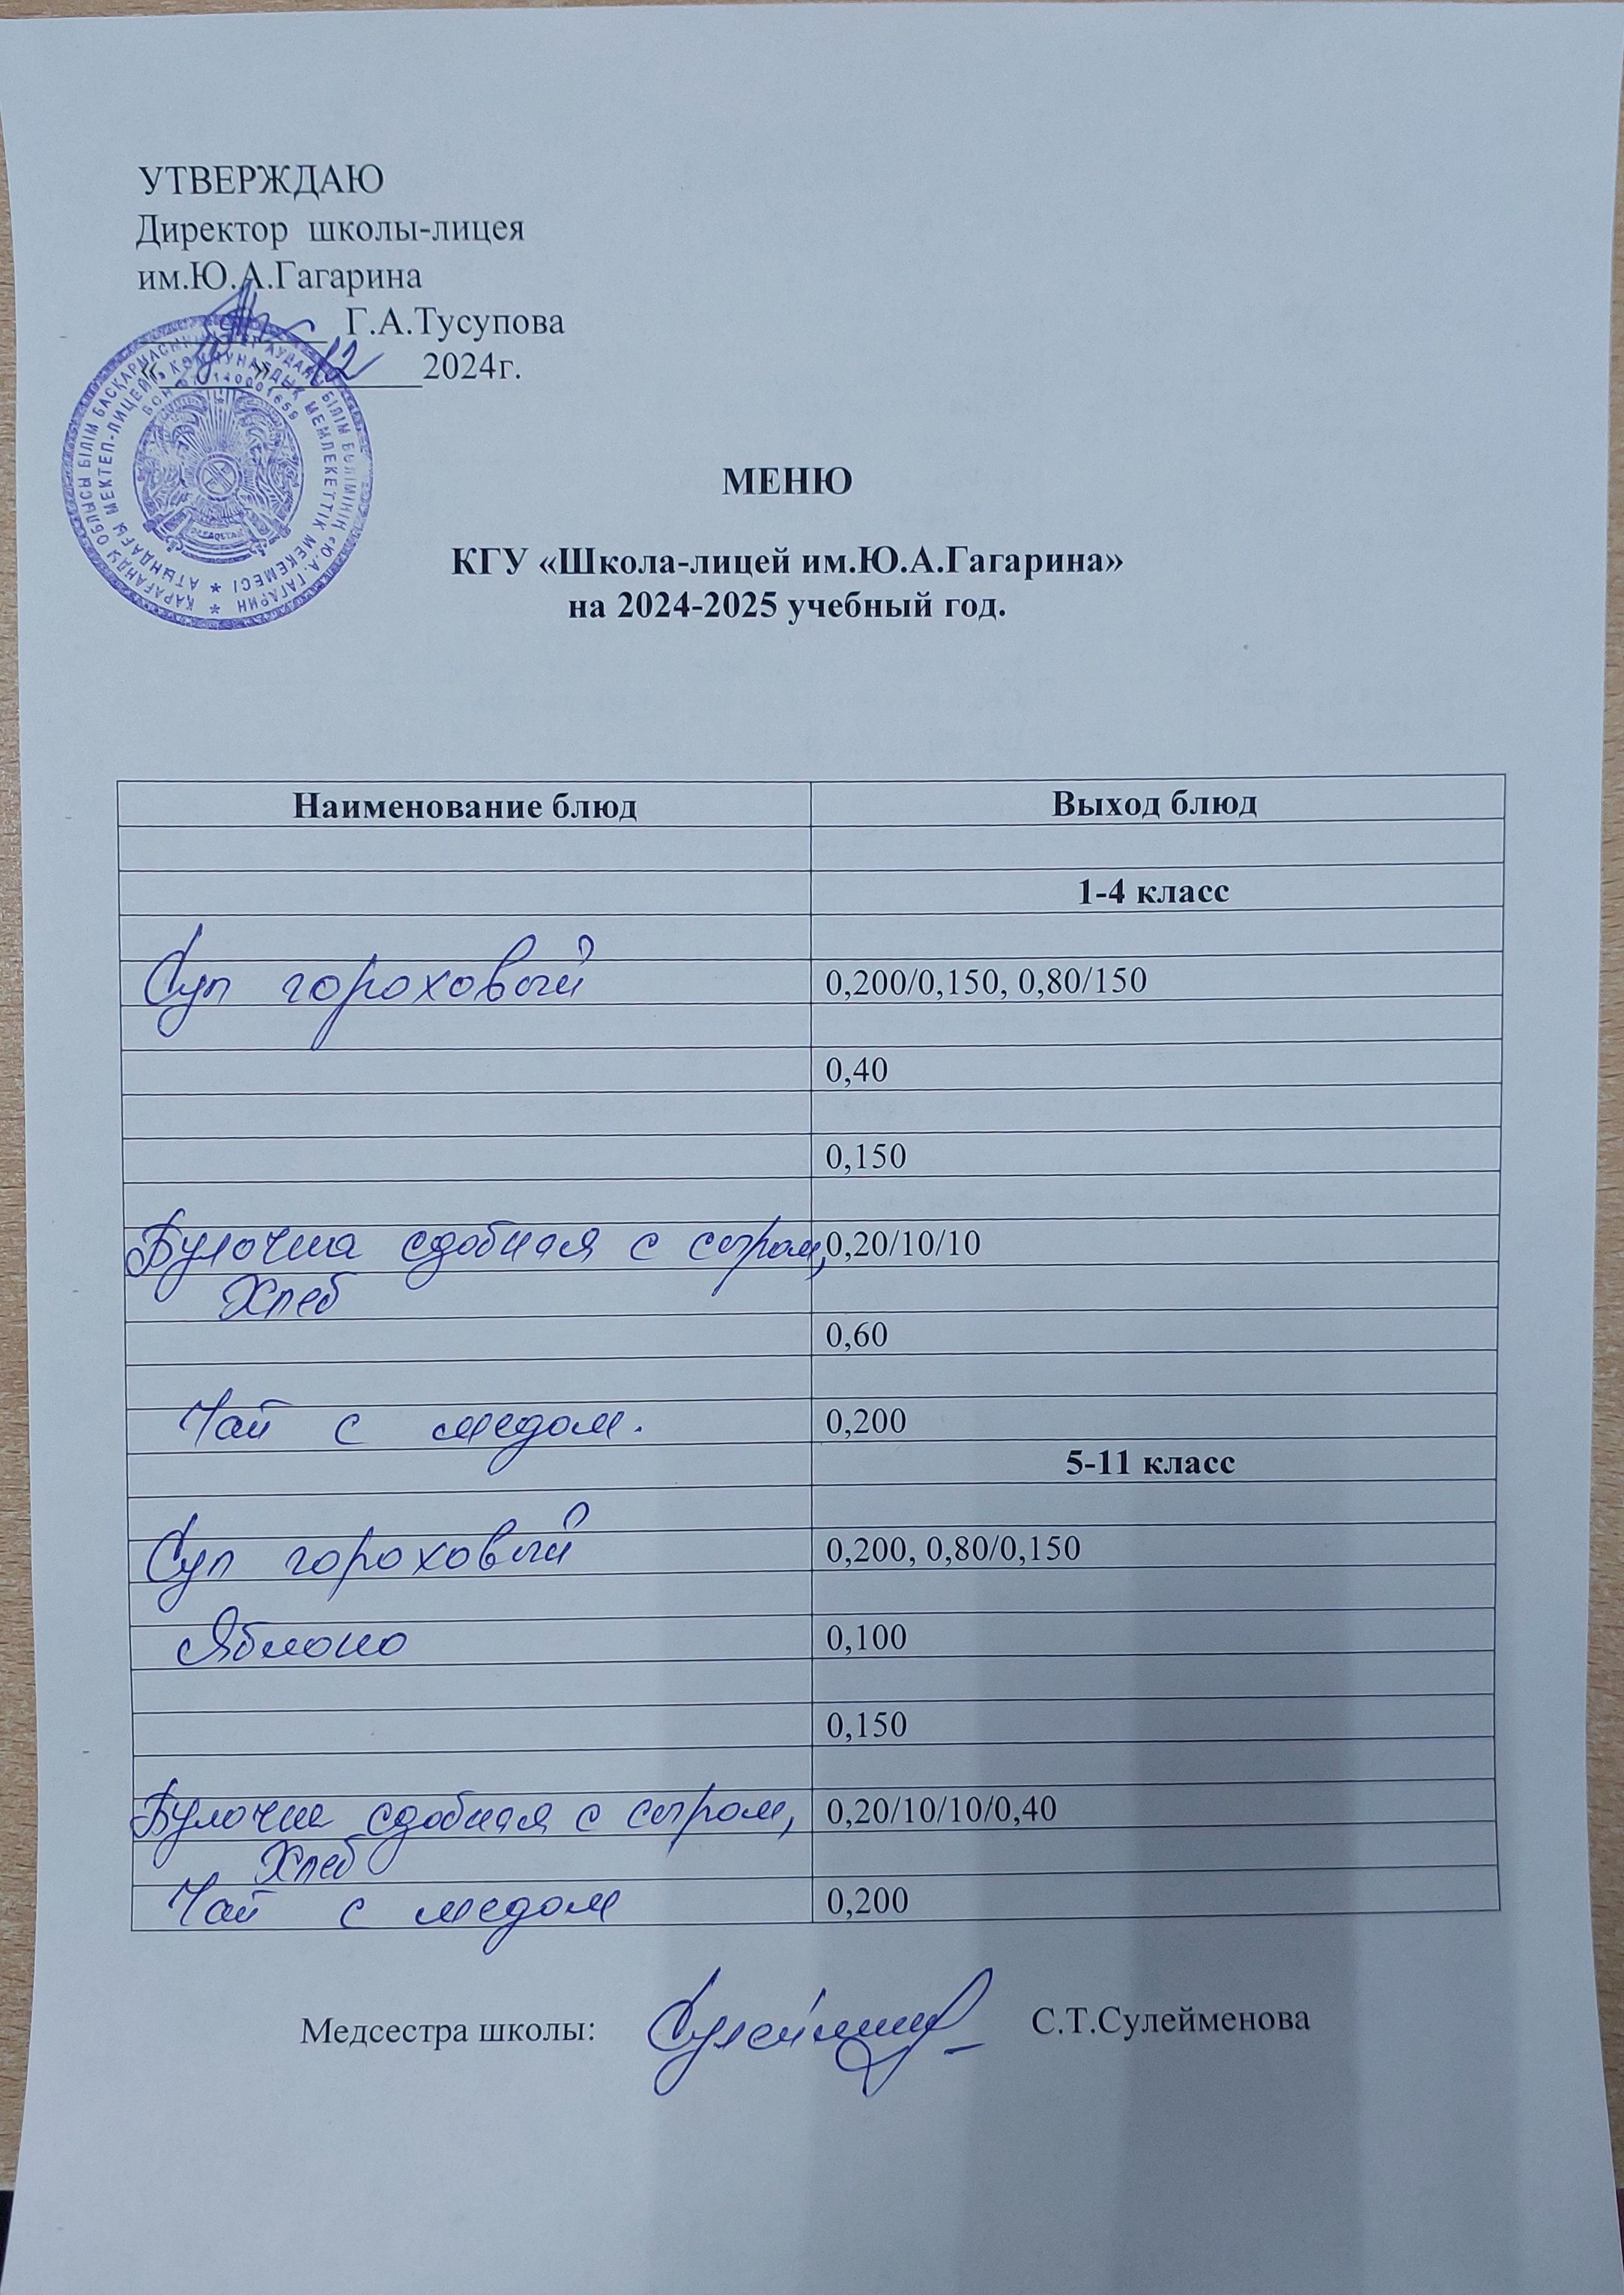 УТВЕРЖДАЮ
Директор школы-лицея
им.Ю.А.Гагарина
Г.А.Тусупова
« » 12 2024г.
МЕНЮ
КГУ «Школа-лицей им.Ю.А.Гагарина»
на 2024-2025 учебный год.
Наименование блюд Выход блюд
1-4 класс
Суп гороховый 0,200/0,150, 0,80/150
0,40
0,150
Булочка сдобная с сыром, 0,20/10/10
Хлеб
0,60
Чай с медом. 0,200
5-11 класс
Суп гороховый 0,200, 0,80/0,150
Яблоко 0,100
0,150
Булочка сдобная с сыром, 0,20/10/10/0,40
Хлеб
Чай с медом 0,200
Медсестра школы: С.Т.Сулейменова
ҚАРАҒАНДЫ ОБЛЫСЫ БІЛІМ БАСҚАРМАСЫНЫҢ БІЛІМ БӨЛІМІНІҢ «Ю.А. ГАГАРИН
АТЫНДАҒЫ МЕКТЕП-ЛИЦЕЙІ» КОММУНАЛДЫҚ МЕМЛЕКЕТТІК МЕКЕМЕСІ